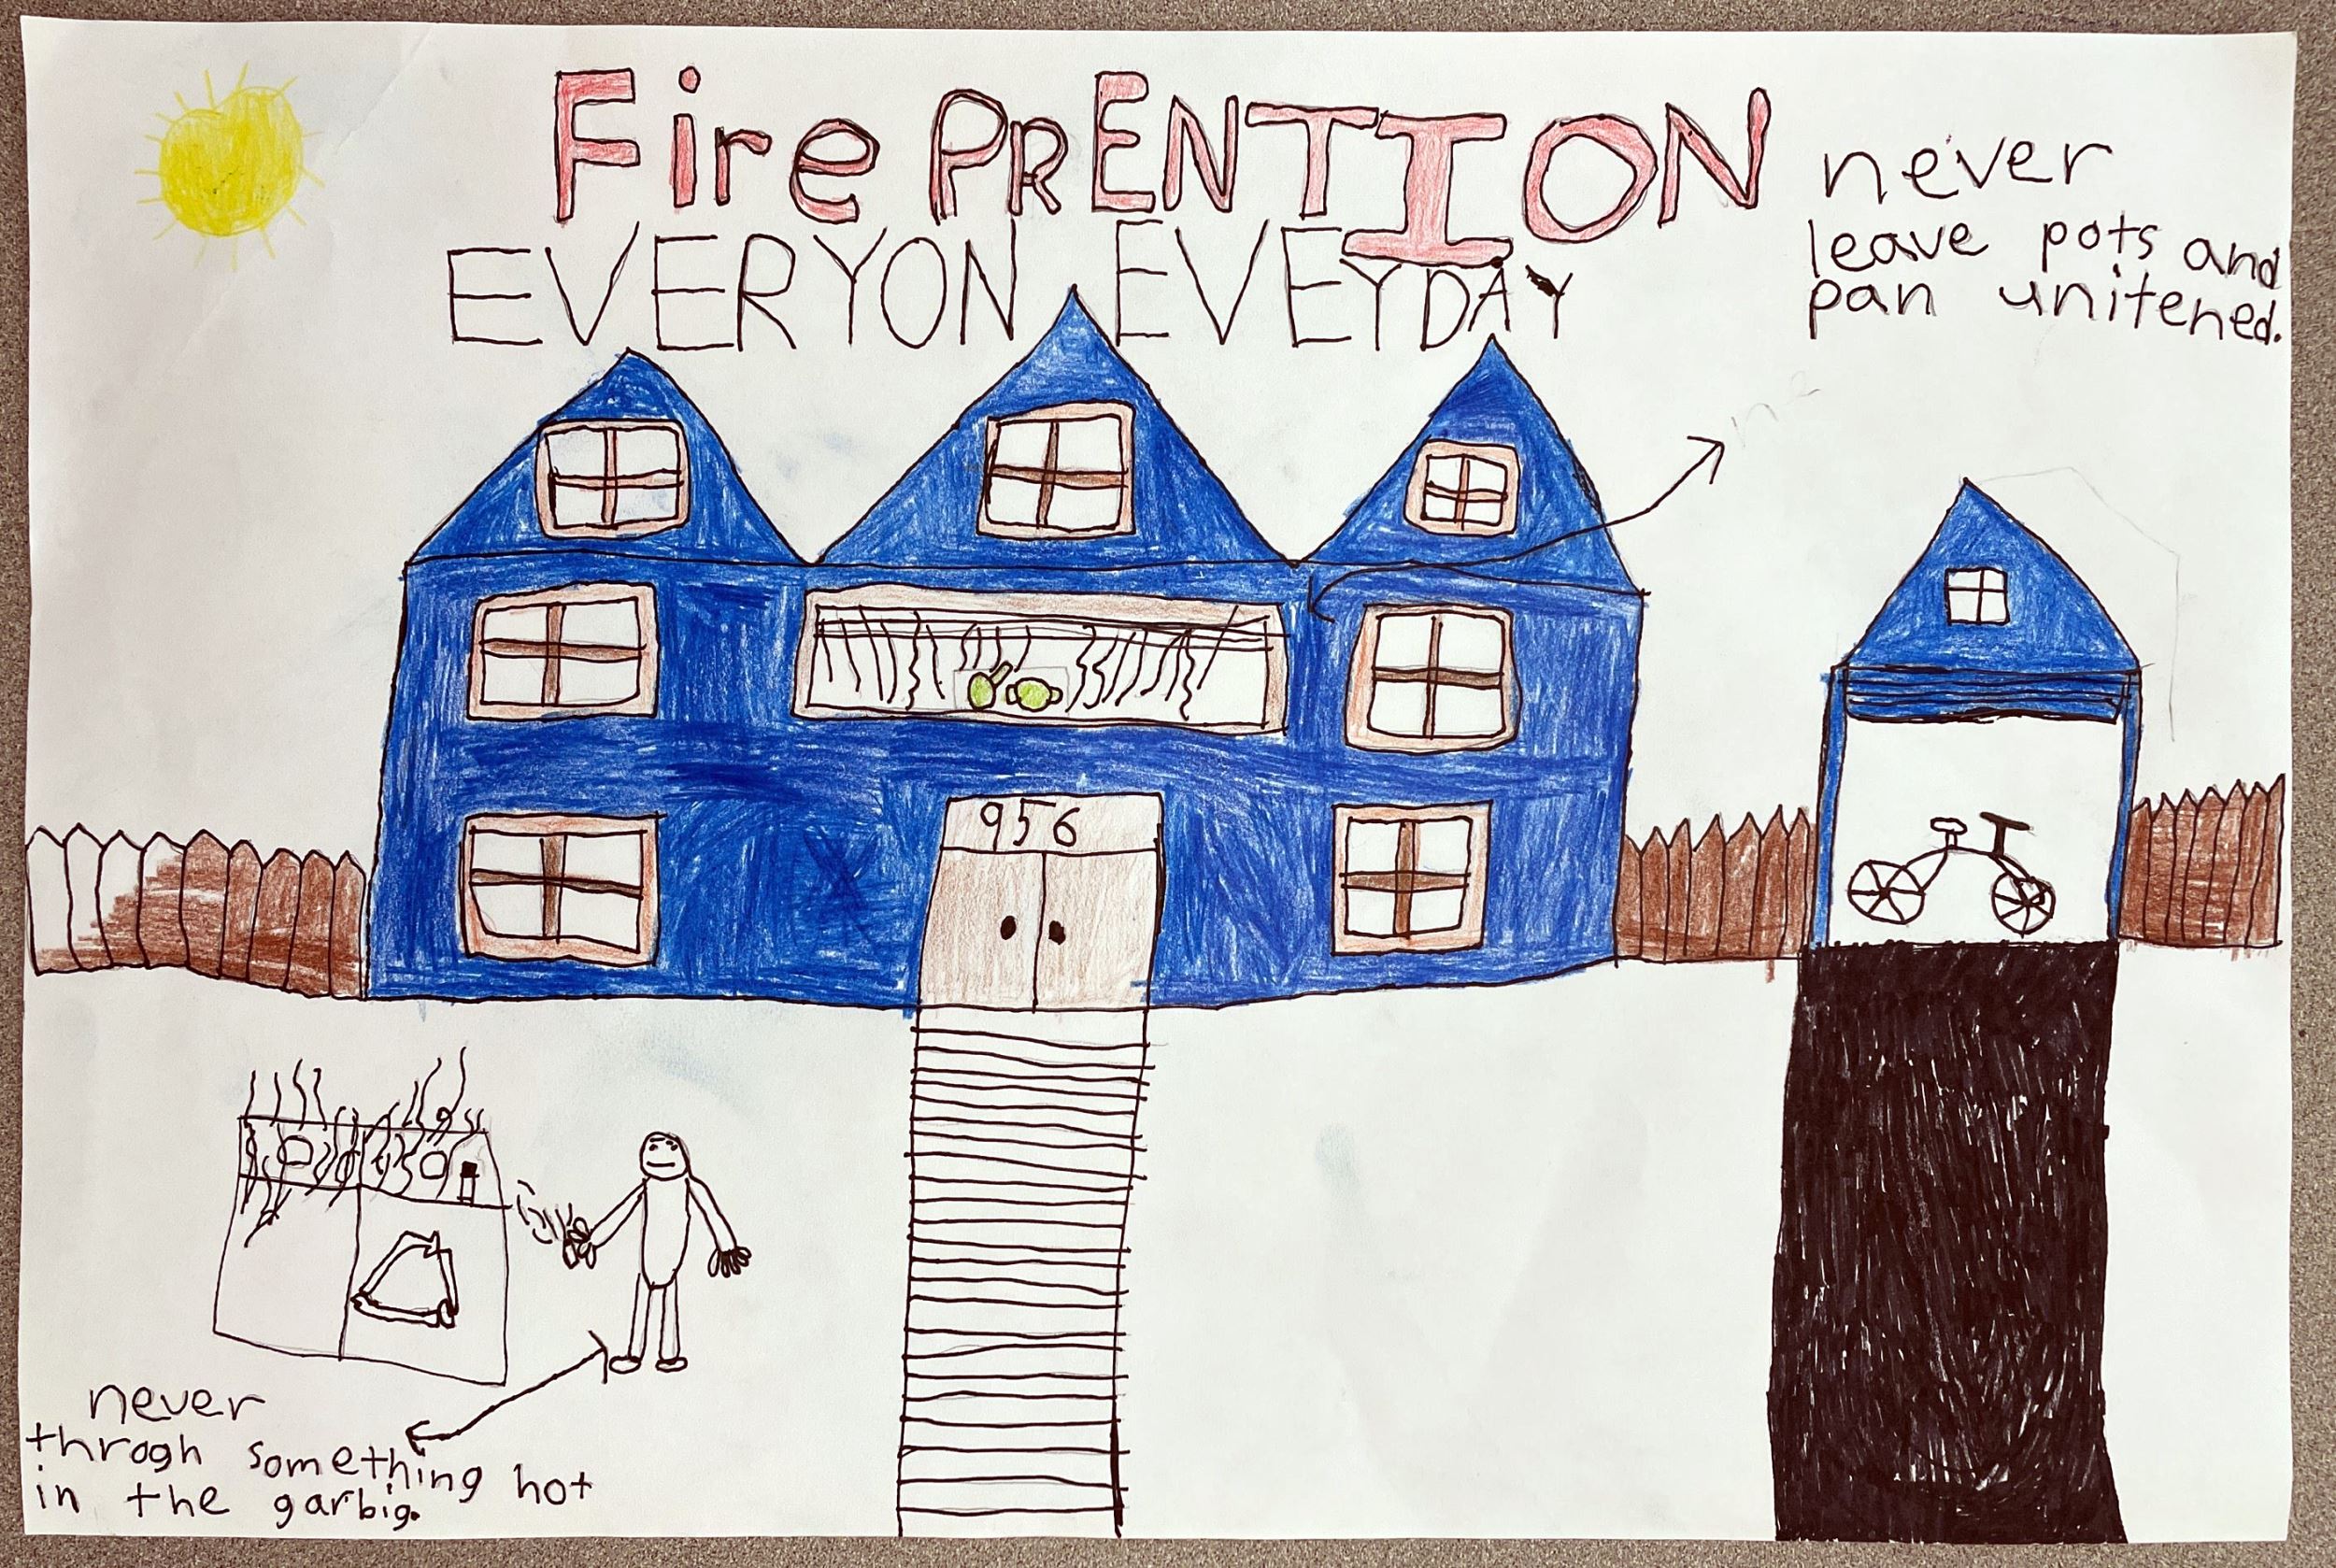 Fire PRENTION
EVERYON EVEYDAY
never
leave pots and
pan unitened.
956
never
throgh something hot
in the garbig.